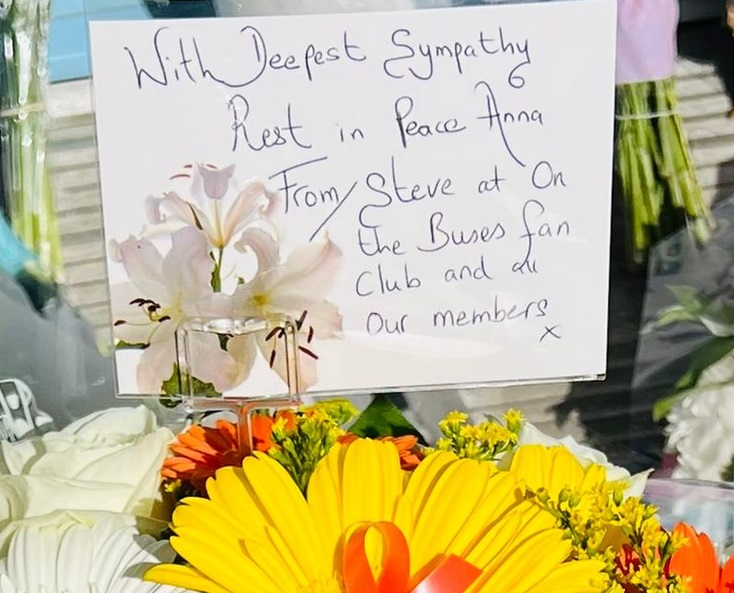 With Deepest Sympathy
Rest in Peace Anna
From Steve at On
the Buses fan
Club and all
our members
x